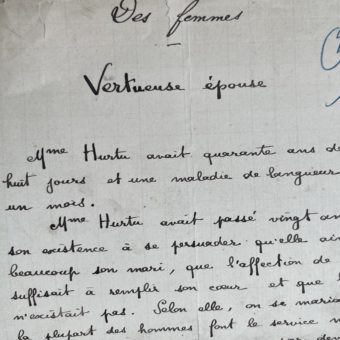 Des femmes
Vertueuse épouse
Mme Hurtu avait quarante ans de
huit jours et une maladie de langueur
un mois.
Mme Hurtu avait passé vingt an
son existence à se persuader qu'elle aim
beaucoup son mari, que l'affection de
suffisait à remplir son cœur et que l
n'existait pas. Selon elle, on se maria
la plupart des hommes font le service m